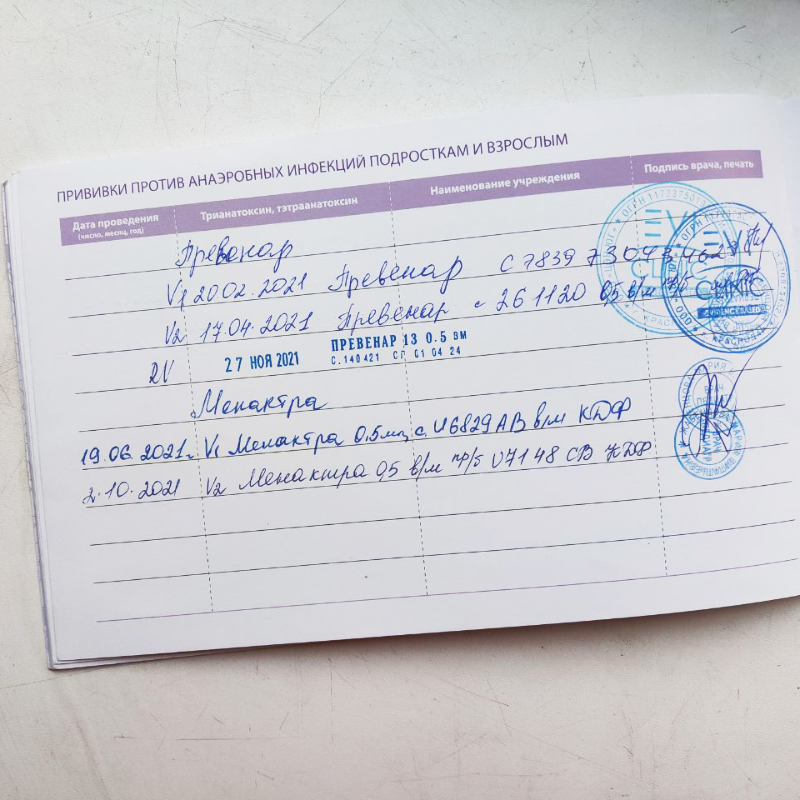 ПРИВИВКИ ПРОТИВ АНАЭРОБНЫХ ИНФЕКЦИЙ ПОДРОСТКАМ И ВЗРОСЛЫМ
Дата проведения (число, месяц, год) Трианатоксин, тэтраанатоксин Наименование учреждения Подпись врача, печать
Превенар
V1 20.02.2021 Превенар с 7839
V2 17.04.2021 Превенар с 261120 0,5 в/м
RV 27 НОЯ 2021 ПРЕВЕНАР 13 0.5 ВМ
С. 140421 СГ 01 04 24
Менактра
19.06.2021г. V1 Менактра 0.5мл с. U6829AB в/м КДФ
2.10.2021 V2 Менактра 0,5 в/м пр/б U7148 CB КДФ
EV
CLINIC
КРАСНОДАР